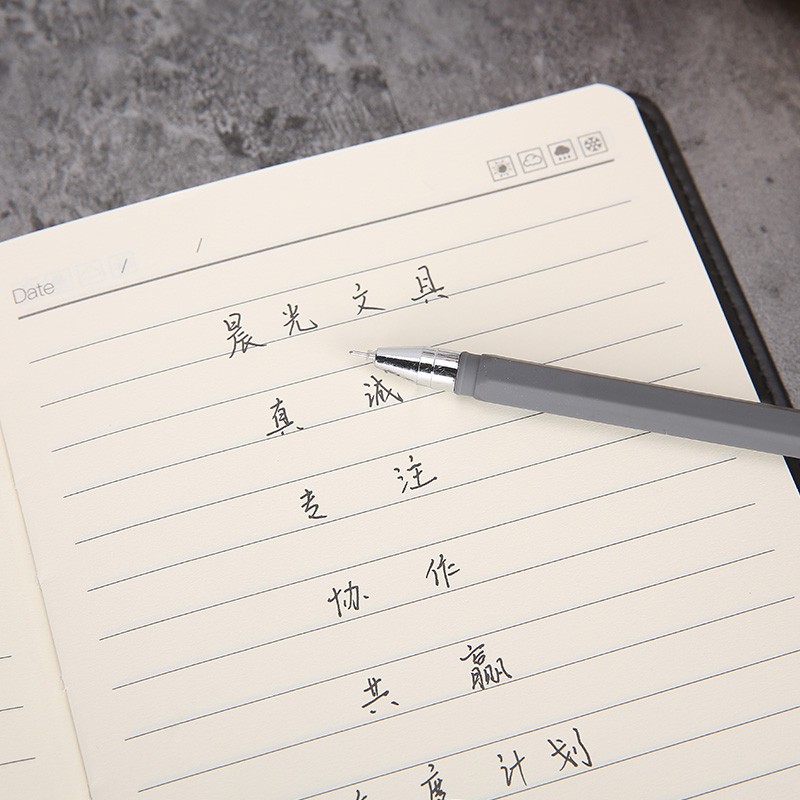 Date / /
晨光文具
真诚
专注
协作
共赢
度计划